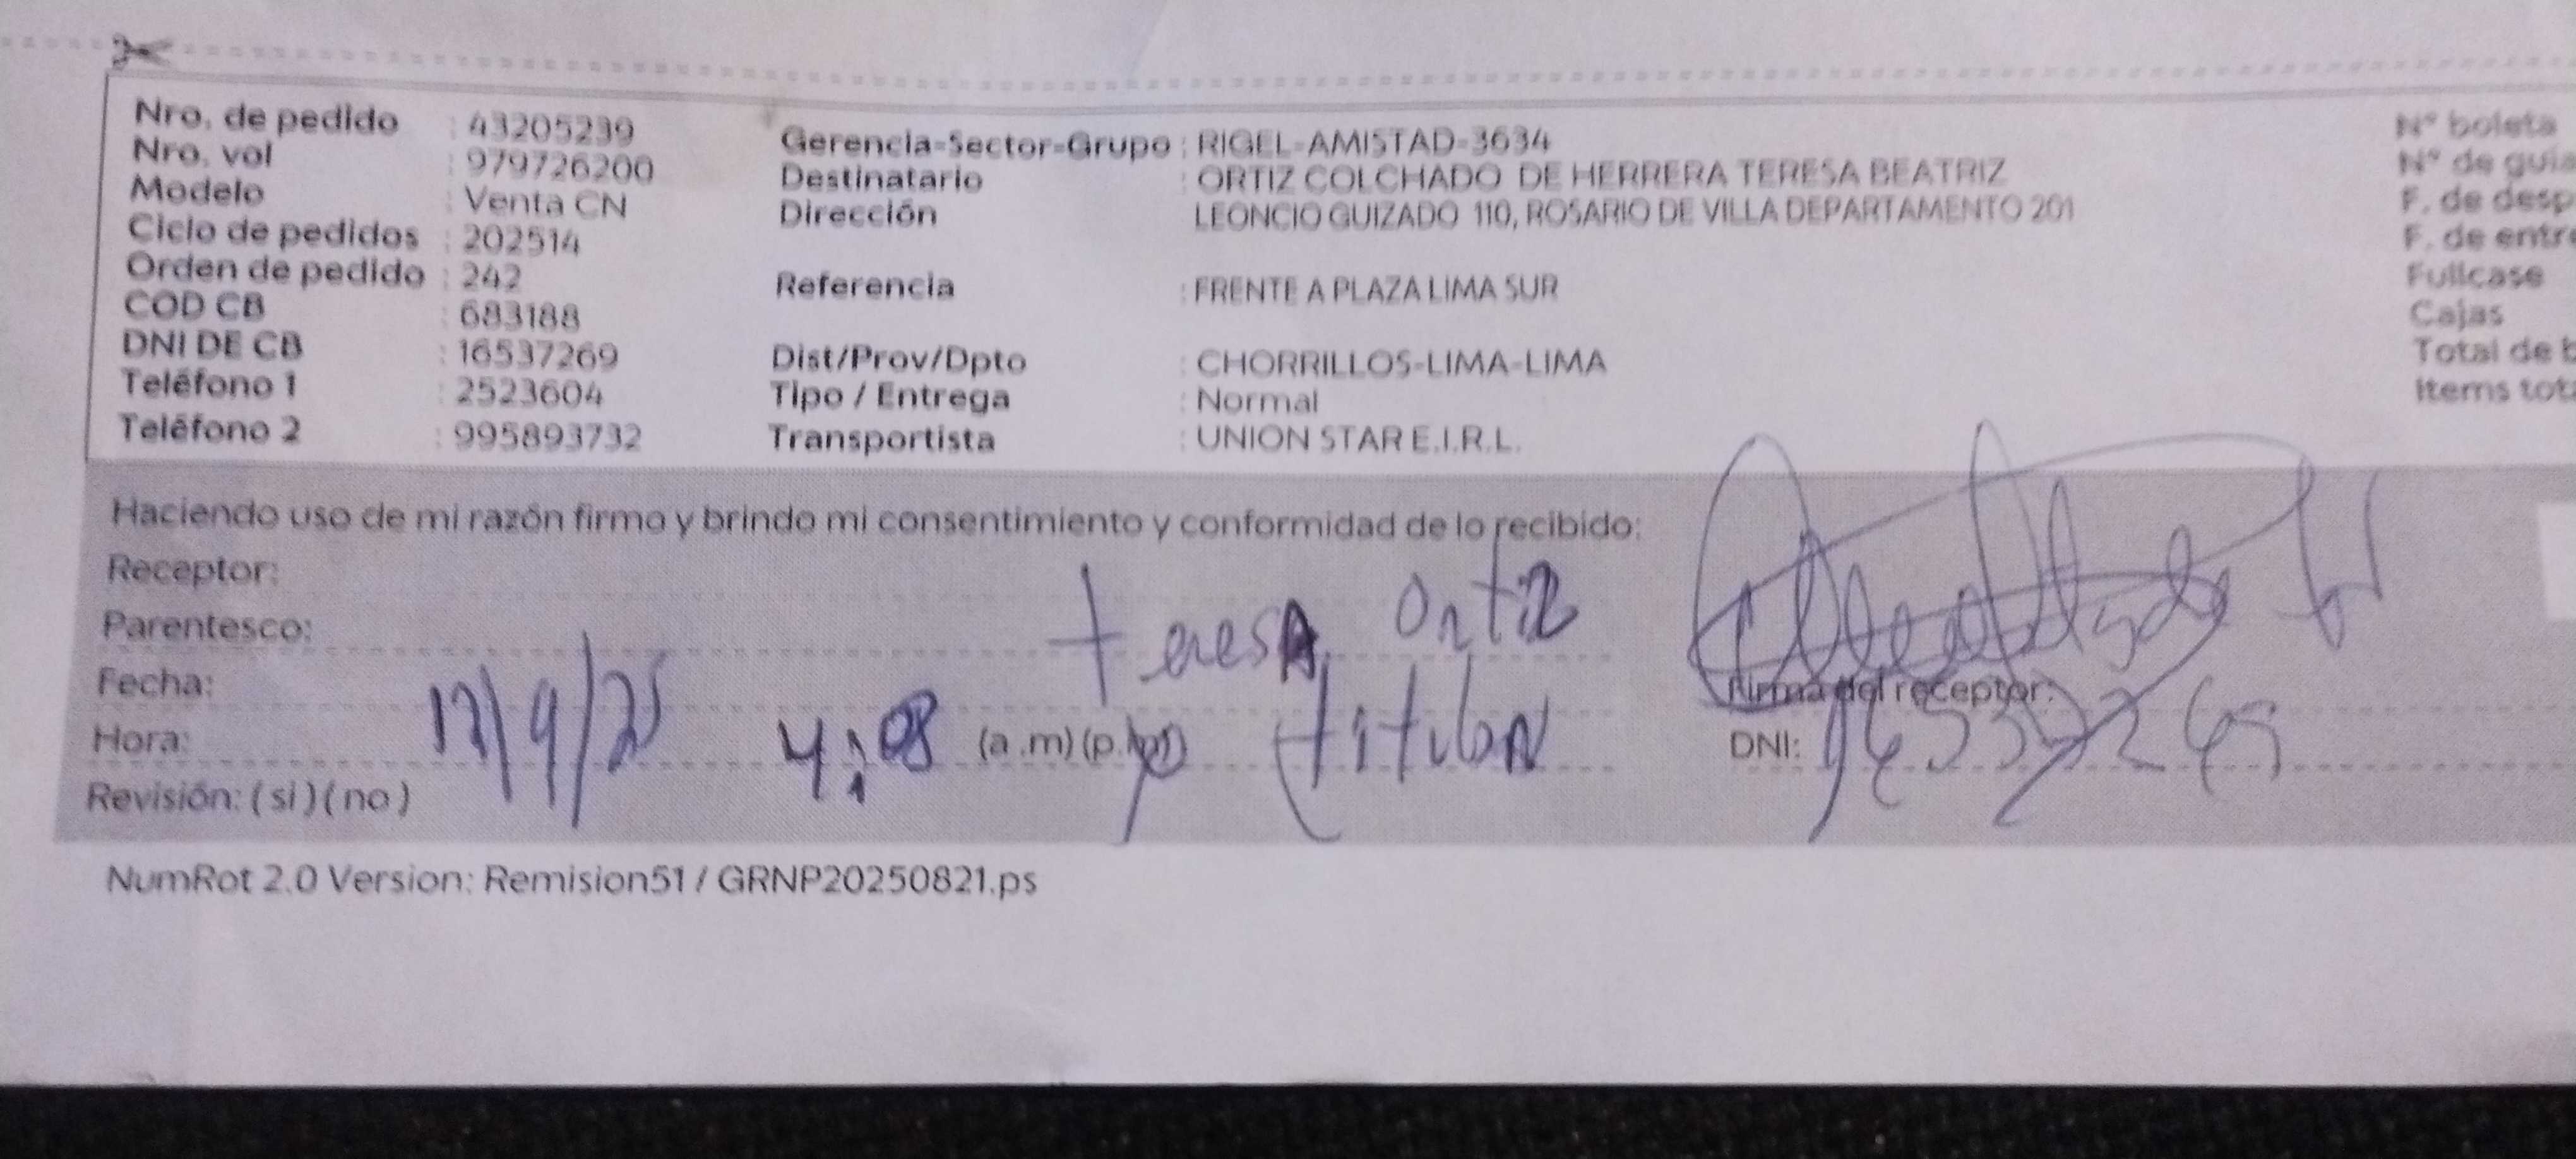 Nro. de pedido : 43205239
Nro. vol : 979726200
Modelo : Venta CN
Ciclo de pedidos : 202514
Orden de pedido : 242
COD CB : 683188
DNI DE CB : 16537269
Teléfono 1 : 2523604
Teléfono 2 : 995893732
Gerencia-Sector-Grupo : RIGEL-AMISTAD-3634
Destinatario : ORTIZ COLCHADO DE HERRERA TERESA BEATRIZ
Dirección LEONCIO GUIZADO 110, ROSARIO DE VILLA DEPARTAMENTO 201
Referencia : FRENTE A PLAZA LIMA SUR
Dist/Prov/Dpto : CHORRILLOS-LIMA-LIMA
Tipo / Entrega : Normal
Transportista : UNION STAR E.I.R.L.
Nº boleta
Nº de guia
F. de desp
F. de entre
Fullcase
Cajas
Total de b
Items tota
Haciendo uso de mi razón firmo y brindo mi consentimiento y conformidad de lo recibido:
Receptor: teresA Ortiz
Parentesco: titular
Fecha: 12/9/25
Hora: 4:08 (a .m) (p.m)
Revisión: ( si ) ( no )
Firma del receptor:
DNI: 16537269
NumRot 2.0 Version: Remision51 / GRNP20250821.ps